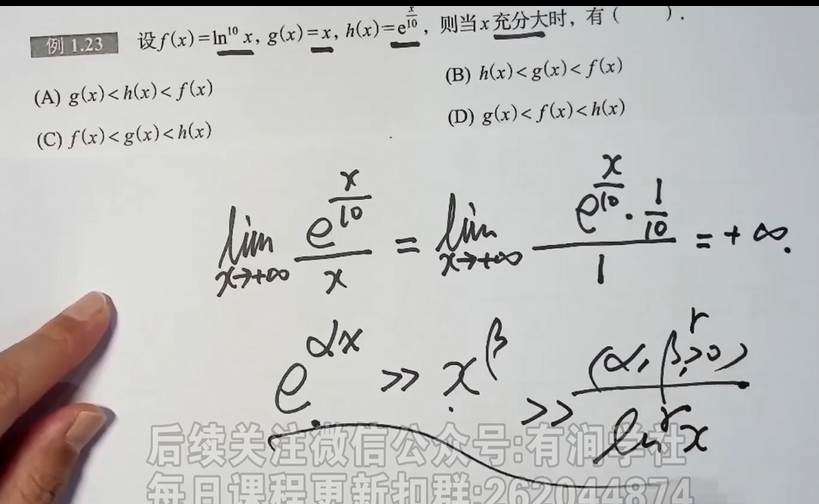 例 1.23 设f(x)=ln¹⁰ x, g(x)=x, h(x)=e^{x/10}, 则当x充分大时,有( ).
(A) g(x)<h(x)<f(x) (B) h(x)<g(x)<f(x)
(C) f(x)<g(x)<h(x) (D) g(x)<f(x)<h(x)
lim_{x→+∞} e^{x/10}/x = lim_{x→+∞} (e^{x/10}·1/10)/1 = +∞.
e^{αx} >> x^β >> ln^r x (α, β, r>0)
后续关注微信公众号:有润学社
每日课程更新扣群:262044874